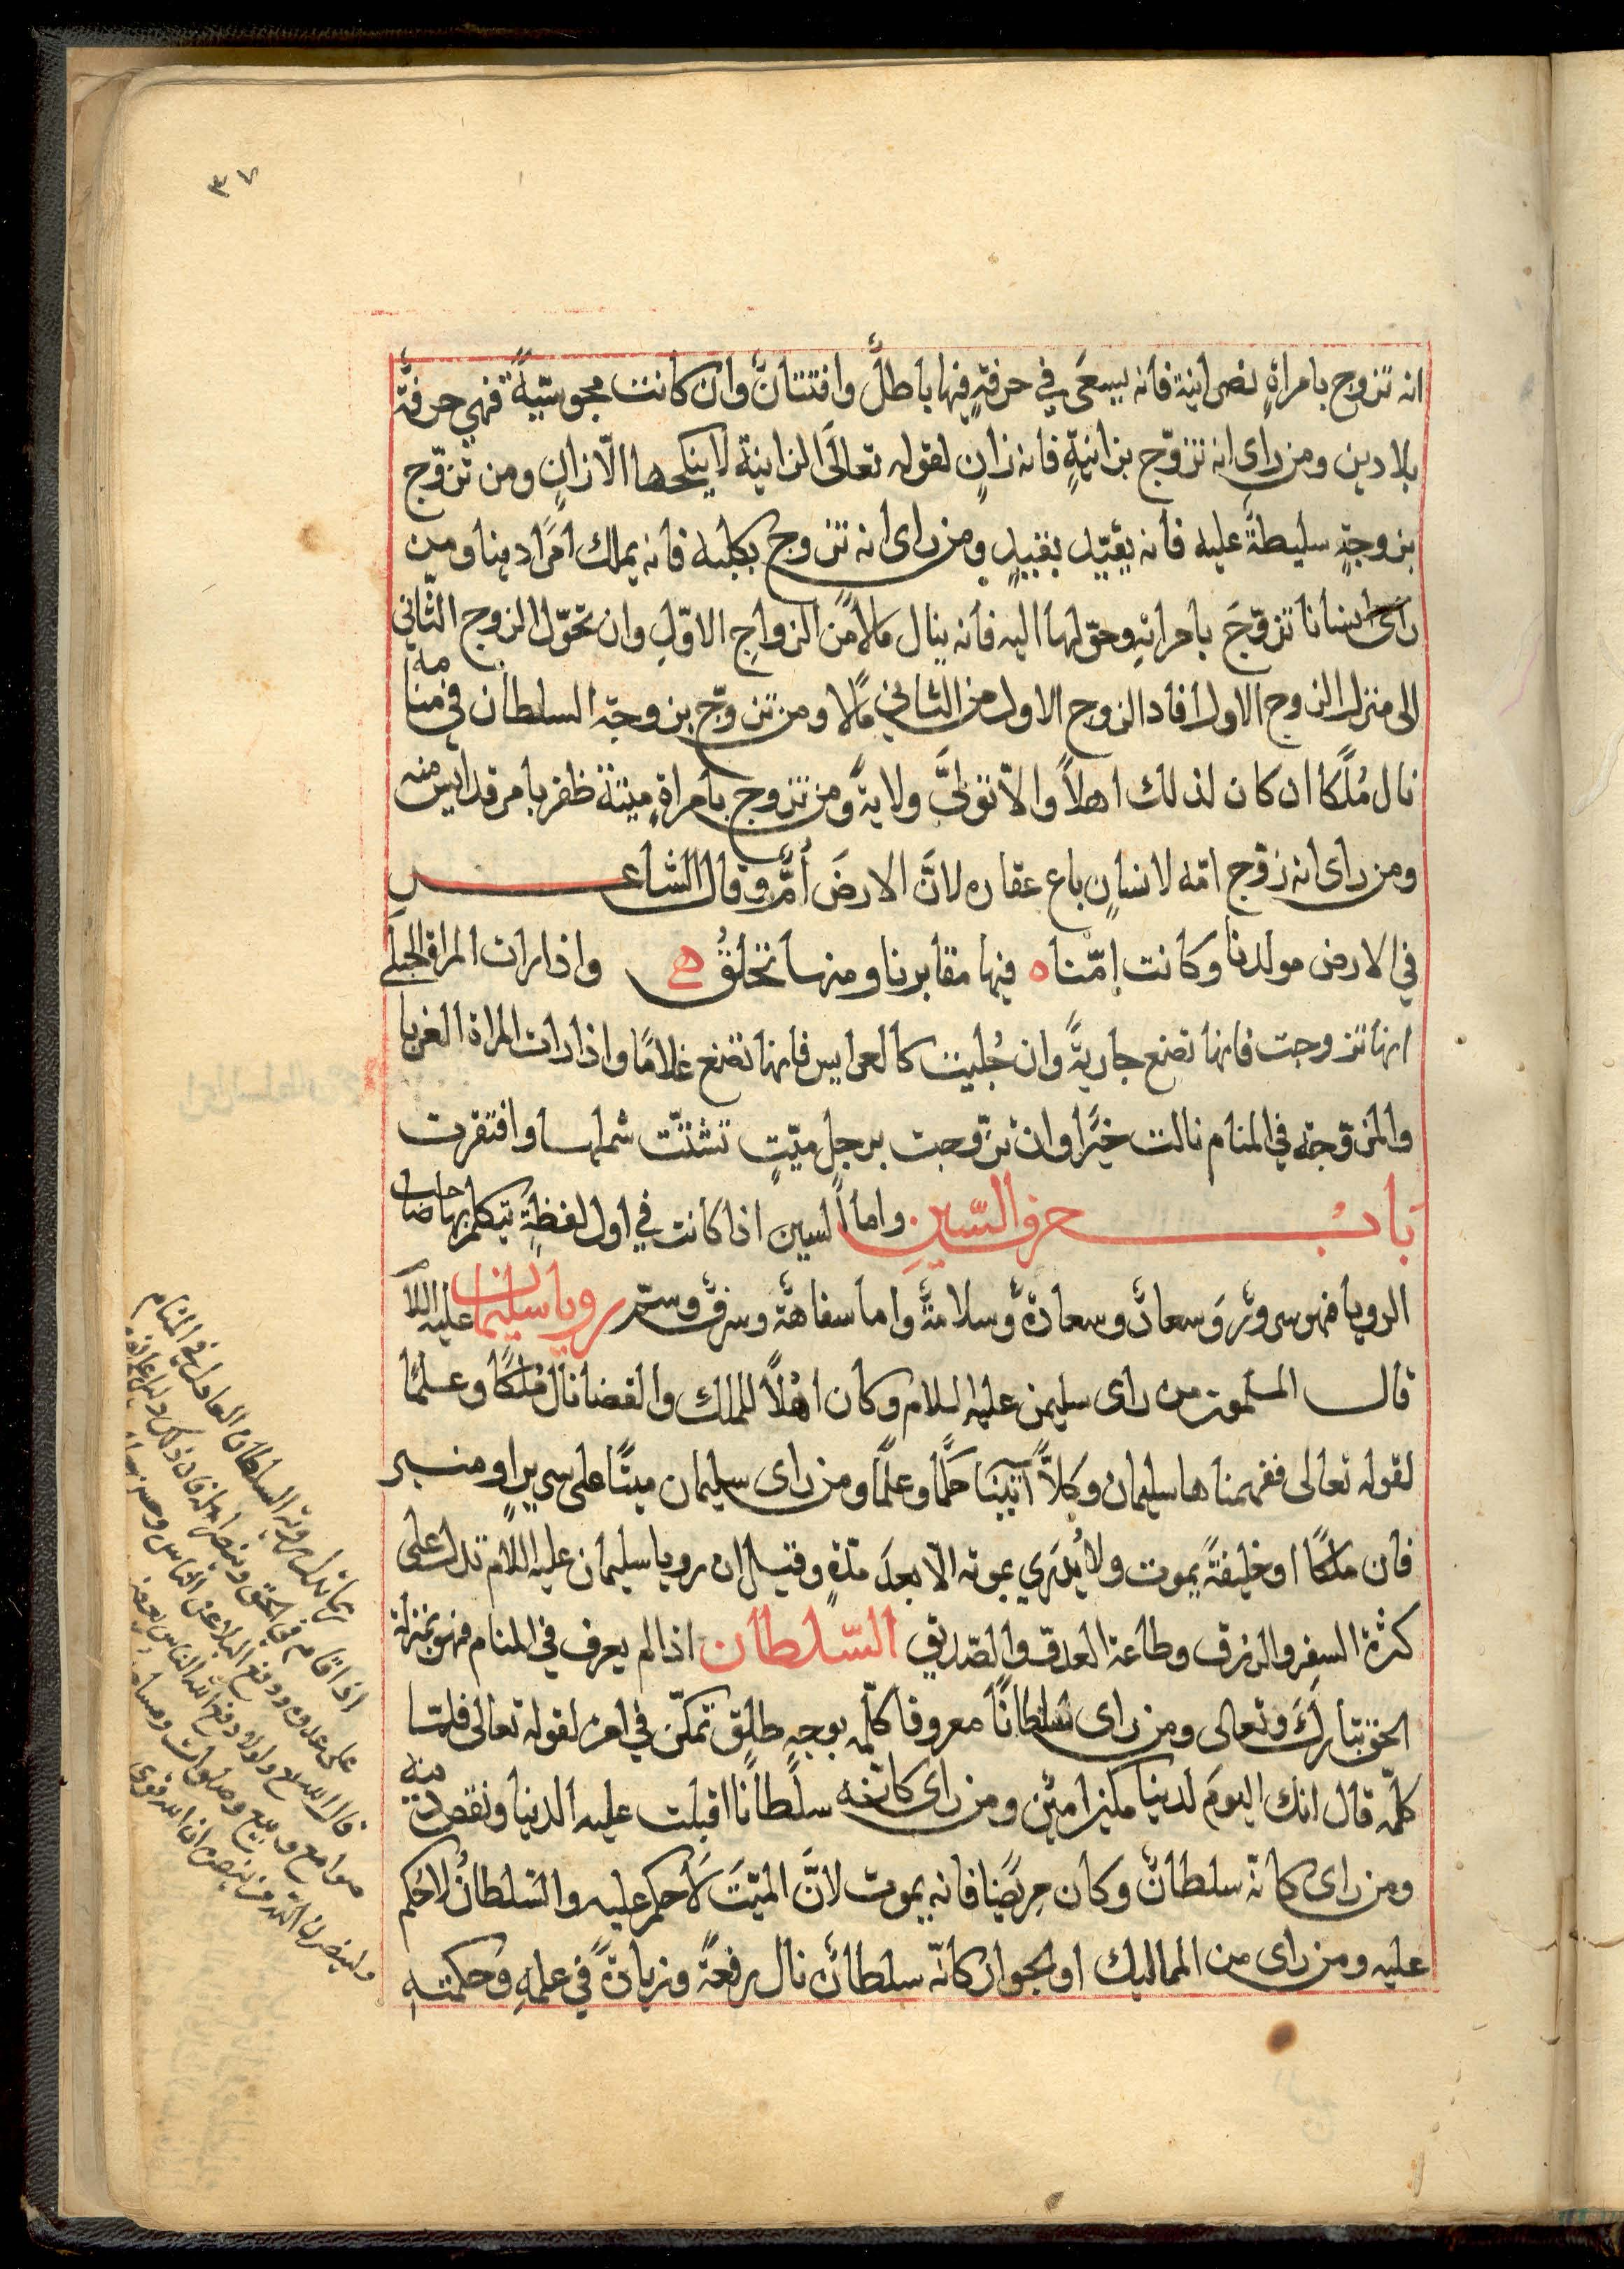 ٣٧
انه تزوج بامراةٍ نصرانية فانه يسعَى في حرفةٍ فيها باطلٌ وافتتانٌ وان كانت مجوسّيةً فهي حرفةٌ
بلا دين ومن راى انه تزوّج بزانيةٍ فانه زانٍ لقوله تعالَى الزانية لا ينكحها الّا زانٍ ومن تزوّج
بزوجةٍ سليطةً عليه فانه يقيّد بقييدٍ ومن راى انه تزوج بكلبه فانه يملك امرًا دينا ومن
راى انسانا تزوّجَ بامراتهِ وحوّلها اليه فانه ينال مالًا من الزواجِ الاوّلِ وان تحوّل الزوج الثّاني
الى منزل الزوج الاول افاد الزوج الاول من الثاني مالًا ومن تزوّج بزوجة السلطان في منامه
نال مُلكًا ان كان لذلك اهلاً والّا تولّى ولايةً ومن تزوج بامراةٍ ميتة ظفر بامر قد ايس منه
ومن راى انه زوّج امّه لانسانٍ باع عقاره لانَّ الارضَ أمٌّ وقال الشاعر
في الارض مولدنا وكانت اِمّنا ه فيها مقابرنا ومنها نخلقُ ه واذا رات المراة الحبلَى
انها تزوجت فانها تضع جاريةً وان جُليت كالعرايس فانها تضع غلامًا واذا رات المراة العزبا
والمزوّجة في المنام نالت خيرًا وان تزوّجت برجل ميّتٍ تشتّت شملها وافتقرت
بابُ حرف السّينِ واما السين اذا كانت في اول لفظةٍ تيكلم بها صاحب
الرويا فهو سرورٌ وسعادٌ وسعادةٌ وسلامةٌ واما سفاهةٌ وسرقٌ وستر رويا سليمان عليه السلام
قال المسلمون من راى سليمن عليه السلام وكان اهْلاً للملك والقضا نال مُلكًا وعلمًا
لقوله تعالى ففهمناها سليمان وكلاًّ آتينا حكمًا وعلمًا ومن راى سليمان ميتًا على سريرٍ او منبر
فان ملكًا او خليفةً يموت ولا يُدرى بموته الّا بعدَ مدّةٍ وقيل ان رويا سليمان عليه السلام تدل على
كثرة السفر والرزق وطاعة العدوّ والصّديق السّلطان اذا لم يعرف في المنام فهو بمنزلة
الحق تباركَ وتعالى ومن راى سلطانًا معروفا كلّمه بوجهٍ طلقٍ تمكّن في امره لقوله تعالى فلمّا
كلّمه قال انك اليومَ لدينا مكين امين ومن راى كانّه سلطانًا اقبلت عليه الدنيا ونقص دينه
ومن راى كانّه سلطانٌ وكان مريضًا فانه يموت لانَّ الميّتَ لا حكم عليه والسّلطانُ لا حكم
عليه ومن راى من المماليك او الجوار كانّه سلطانٌ نال رفعةً وزيادةً في علمهِ وحكمتهِ
ربما تدل روية السلطان العادل في المنام
اذا قام في الحق ونصر
على عدوه ودفع البلاء عن الناس
قال الله تع ولولا دفع الله الناس بعضهم
صوامع وبيع وصلوات ومساجد
ولينصرن الله من ينصره ان الله لقوى